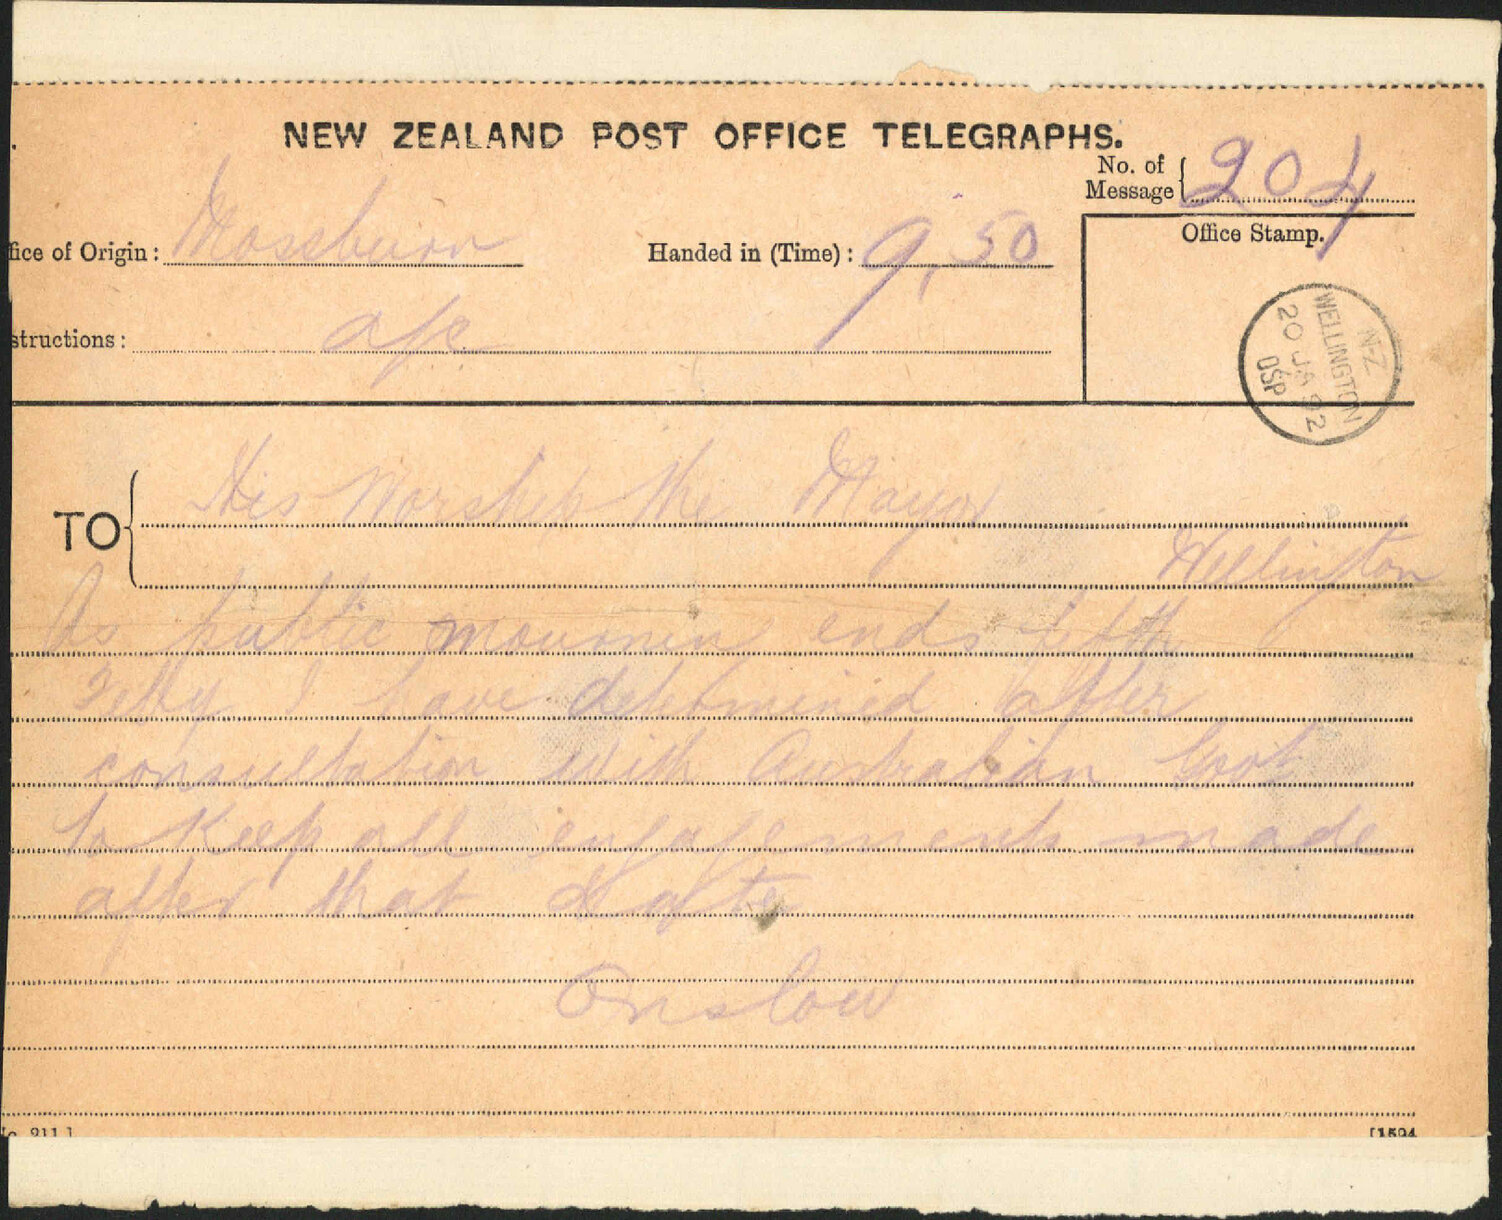 NEW ZEALAND POST OFFICE TELEGRAPHS.
No. of Message 204
fice of Origin: Mossburn Handed in (Time): 9,50
Office Stamp.
structions:
N-Z
WELLINGTON
20 JA 92
OSP
TO His Worship the Mayor
Wellington
As public mournin ends
I have determined after
consultation with Australian Govt
to keep all engagements made
after that date
Onslow
[1594